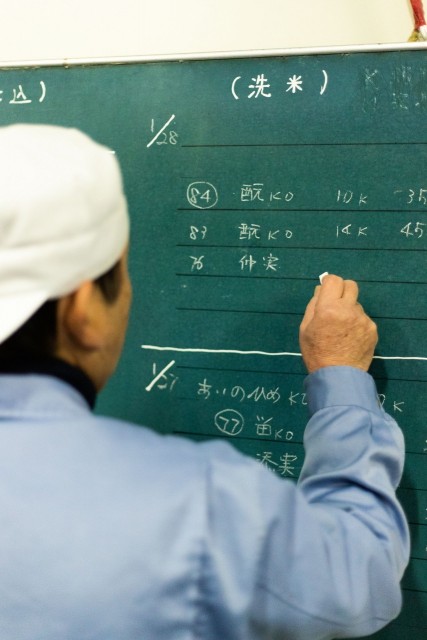 込)
(洗米)
1/28
84 酛 KO 10K 35
83 酛 KO 14K 45
76 仲実
1/27 あいのひめ K
77 留 KO
添実